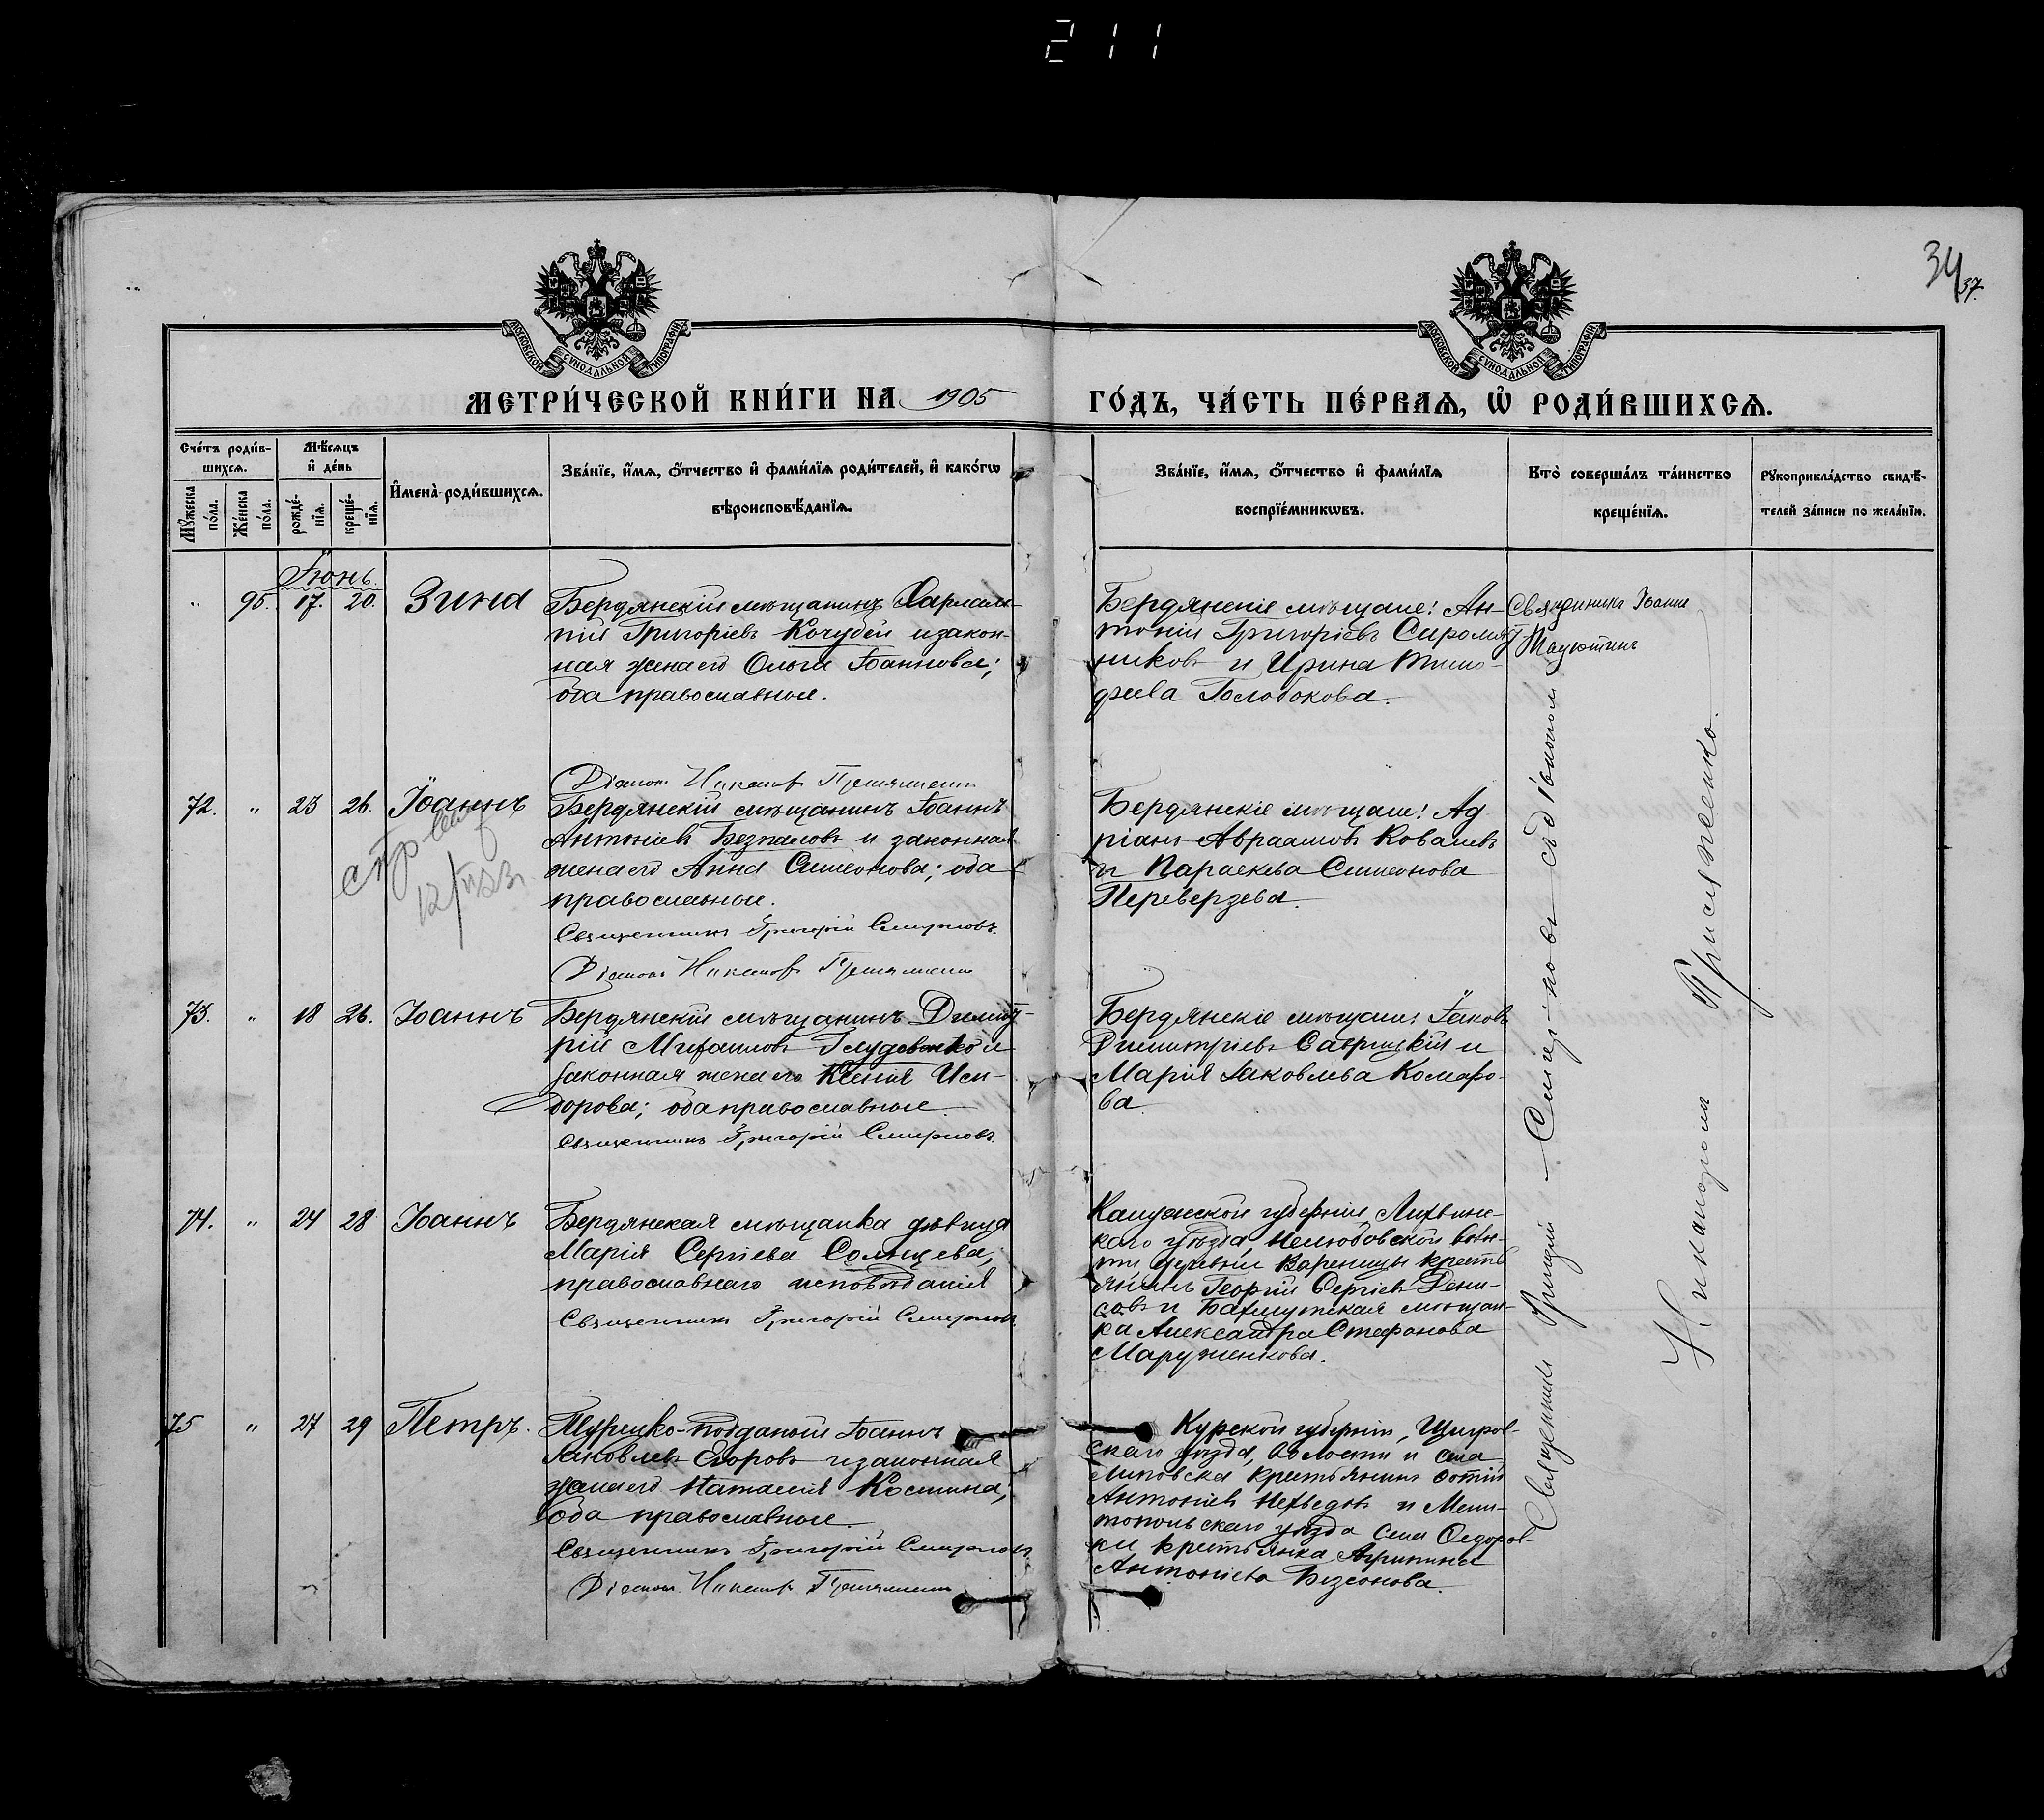 211
34
37.
МОСКОВСКОЙ СѴНОДАЛЬНОЙ ТИПОГРАФІИ
МОСКОВСКОЙ СѴНОДАЛЬНОЙ ТИПОГРАФІИ
МЕТРИ́ЧЕСКОЙ КНИ́ГИ НА 1905
ГО́ДЪ, ЧА́СТЬ ПЕ́РВАѦ, Ѡ҆ РОДИ́ВШИХСѦ.
Сче́тъ роди́в-
шихсѧ.
Мꙋ́жеска по́ла.
Же́нска по́ла.
Мѣ́сѧцъ
и҆ де́нь
рожде́-
нїѧ.
креще́-
нїѧ.
И҆мена̀ роди́вшихсѧ.
Зва́нїе, и҆́мѧ, ѻ҆́тчество и҆ фами́лїѧ роди́телей, и҆ како́гѡ
вѣроисповѣ́данїѧ.
Зва́нїе, и҆́мѧ, ѻ҆́тчество и҆ фами́лїѧ
воспрїе́мникѡвъ.
Кто̀ соверша́лъ та́инство
креще́нїѧ.
Рꙋкоприкла́дство свидѣ́-
телей за́писи по жела́нїю.
Іюнь.
" 95. 17. 20. Зина
Бердянскій мѣщанинъ Харлам-
пій Григоріевъ Кочубей и закон-
ная жена его Ольга Іоаннова;
оба православные.
Бердянскіе мѣщане: Ан-
тоній Григоріевъ Сыромят-
никовъ и Ирина Тимо-
феева Голобокова.
Священникъ Іоаннъ
Діаконъ
72. " 23 26. Іоаннъ
12/
Бердянскій мѣщанинъ Іоаннъ
Антоніевъ Безпаловъ и законная
жена его Анна Симеонова; оба
православные.
Священникъ Григорій Смирновъ.
Діаконъ
Бердянскіе мѣщане: Ад
ріанъ Авраамовъ Ковалевъ
и Параскева Симеонова
Переверзева.
73. " 18 26. Іоаннъ
Бердянскій мѣщанинъ Димит-
рій Михаиловъ и
законная жена его Ксенія Иси-
дорова; оба православные.
Священникъ Григорій Смирновъ.
Бердянскіе мѣщане: Іаковъ
Димитріевъ Саврицкій и
Марія Іаковлева Комаро-
ва.
74. " 24 28 Іоаннъ
Бердянская мѣщанка дѣвица
Марія Сергіева Солнцева,
православнаго исповѣданія
Священникъ Григорій Смирновъ.
Калужской губерніи Лихвин-
скаго уѣзда, волос-
ти, деревни Вареницы кресть
янинъ Георгій Сергіевъ Дени-
совъ и Бахмутская мѣщан-
ка Александра Стефанова
Маруженкова.
75 " 27 29 Петръ.
Турецко-подданный Іоаннъ
Іаковлевъ Егоровъ и законная
жена его Наталія Костина;
оба православные.
Священникъ Григорій Смирновъ
Діаконъ
Курской губерніи, Щигров-
скаго уѣзда, волости и села
Липовска крестьянинъ Фотій
Антоніевъ и Мели-
топольскаго уѣзда села Ѳедоров-
ки крестьянка Агрипина
Антоніева Безсонова.
Священникъ Григорій Смирновъ съ діакономъ
Никаноромъ